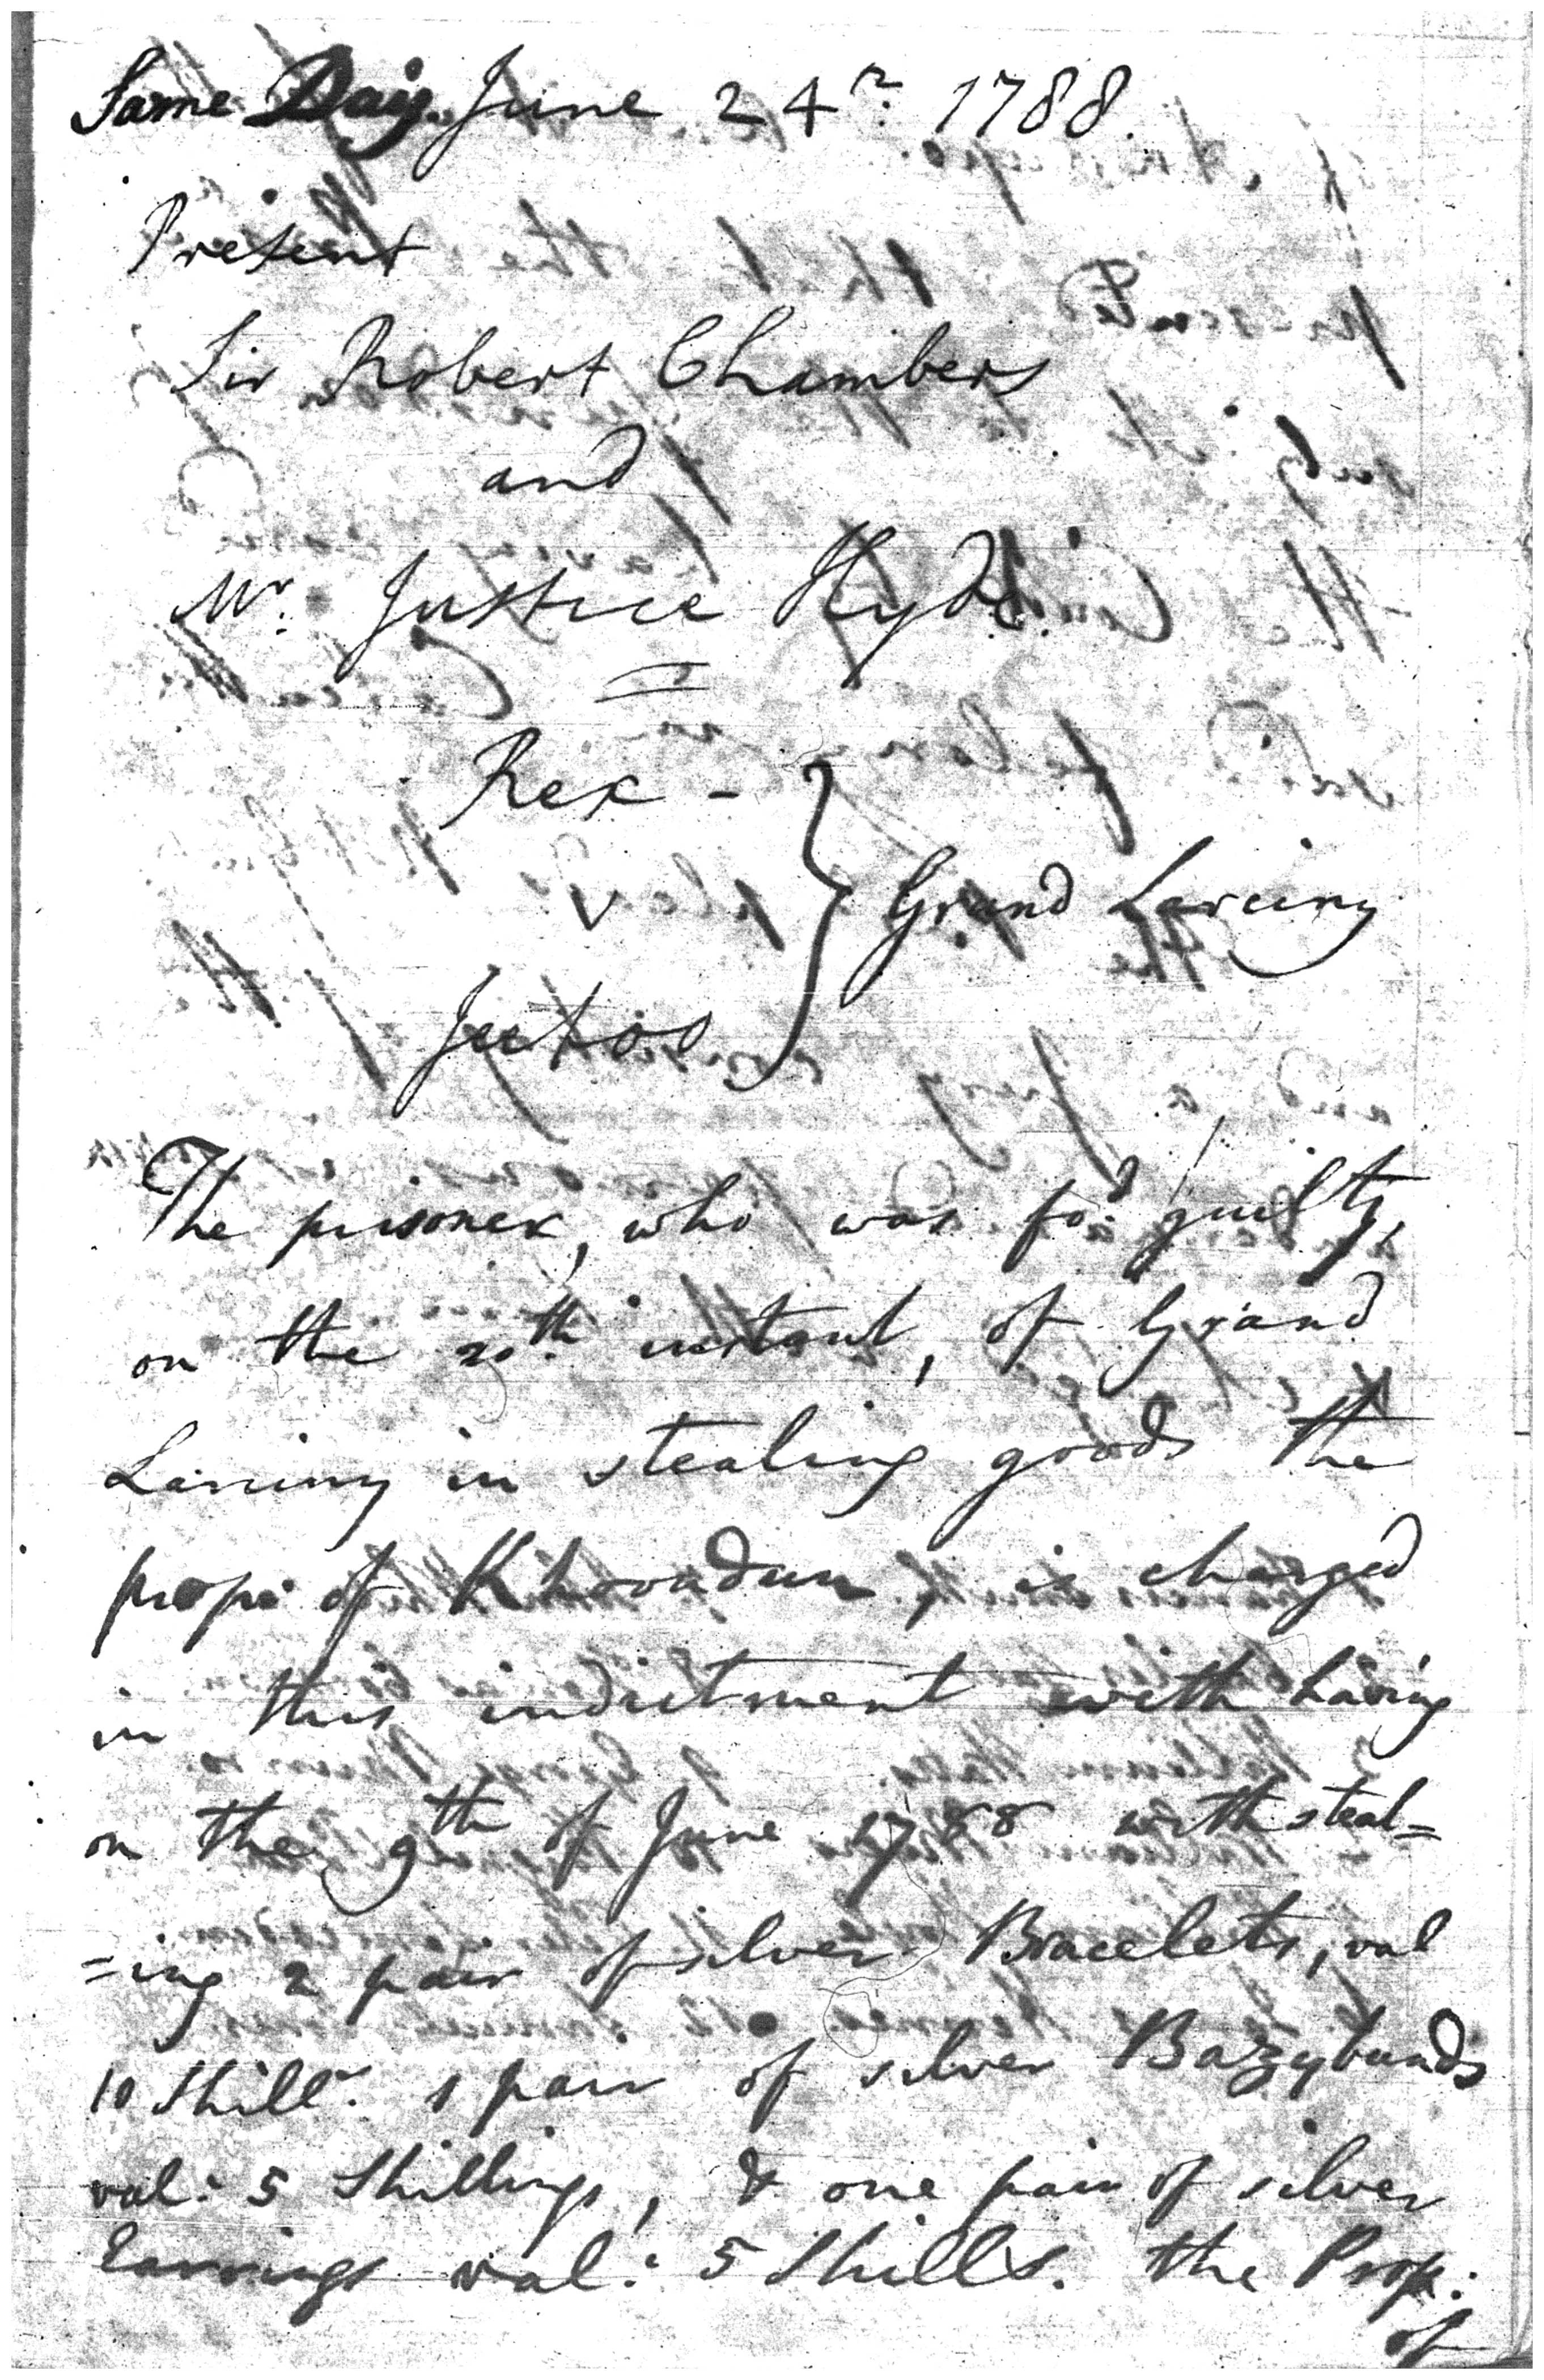 Same Day. June 24th 1788.
Present
Sir Robert Chambers
and
Mr. Justice Hyde.
Rex -
v
Grand Larceny
The prisoner, who was fod. guilty,
on the 20th instant, of Grand
Larciny in stealing goods the
prope of Khooadun, is charged
in this indictment with having
on the 9th of June 1788 with steal=
=ing 2 pair of silver Bracelets, val
10 Shills. 1 pair of silver Bazybunds
val: 5 Shillings, & one pair of silver
Earrings val: 5 Shills. the Prop:
of